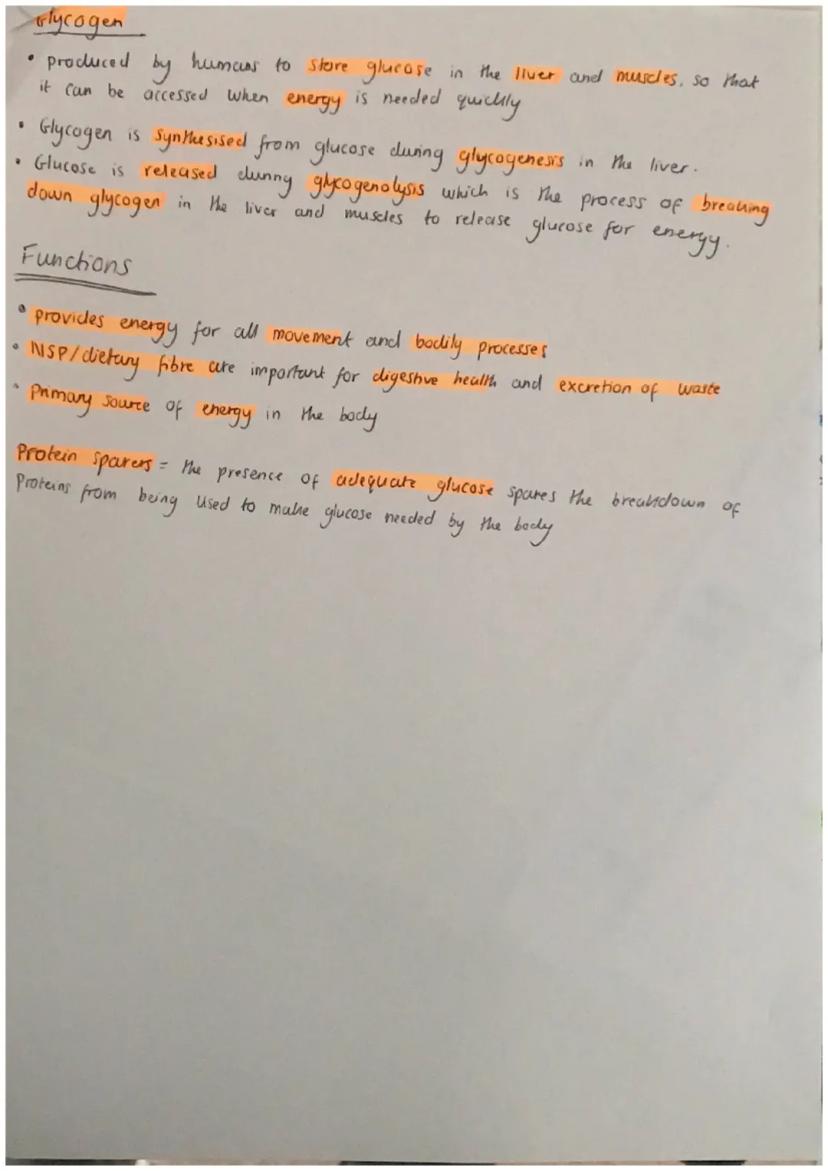 Glycogen
• produced by humans to store glucose in the liver and muscles, so that
it can be accessed when energy is needed quickly
• Glycogen is synthesised from glucose during glycogenesis in the liver.
• Glucose is released during glycogenolysis which is the process of breaking
down glycogen in the liver and muscles to release glucose for energy.
Functions
• provides energy for all movement and bodily processes
• NSP/dietary fibre are important for digestive health and excretion of waste
• Primary source of energy in the body
Protein sparers = the presence of adequate glucose spares the breakdown of
Proteins from being used to make glucose needed by the body